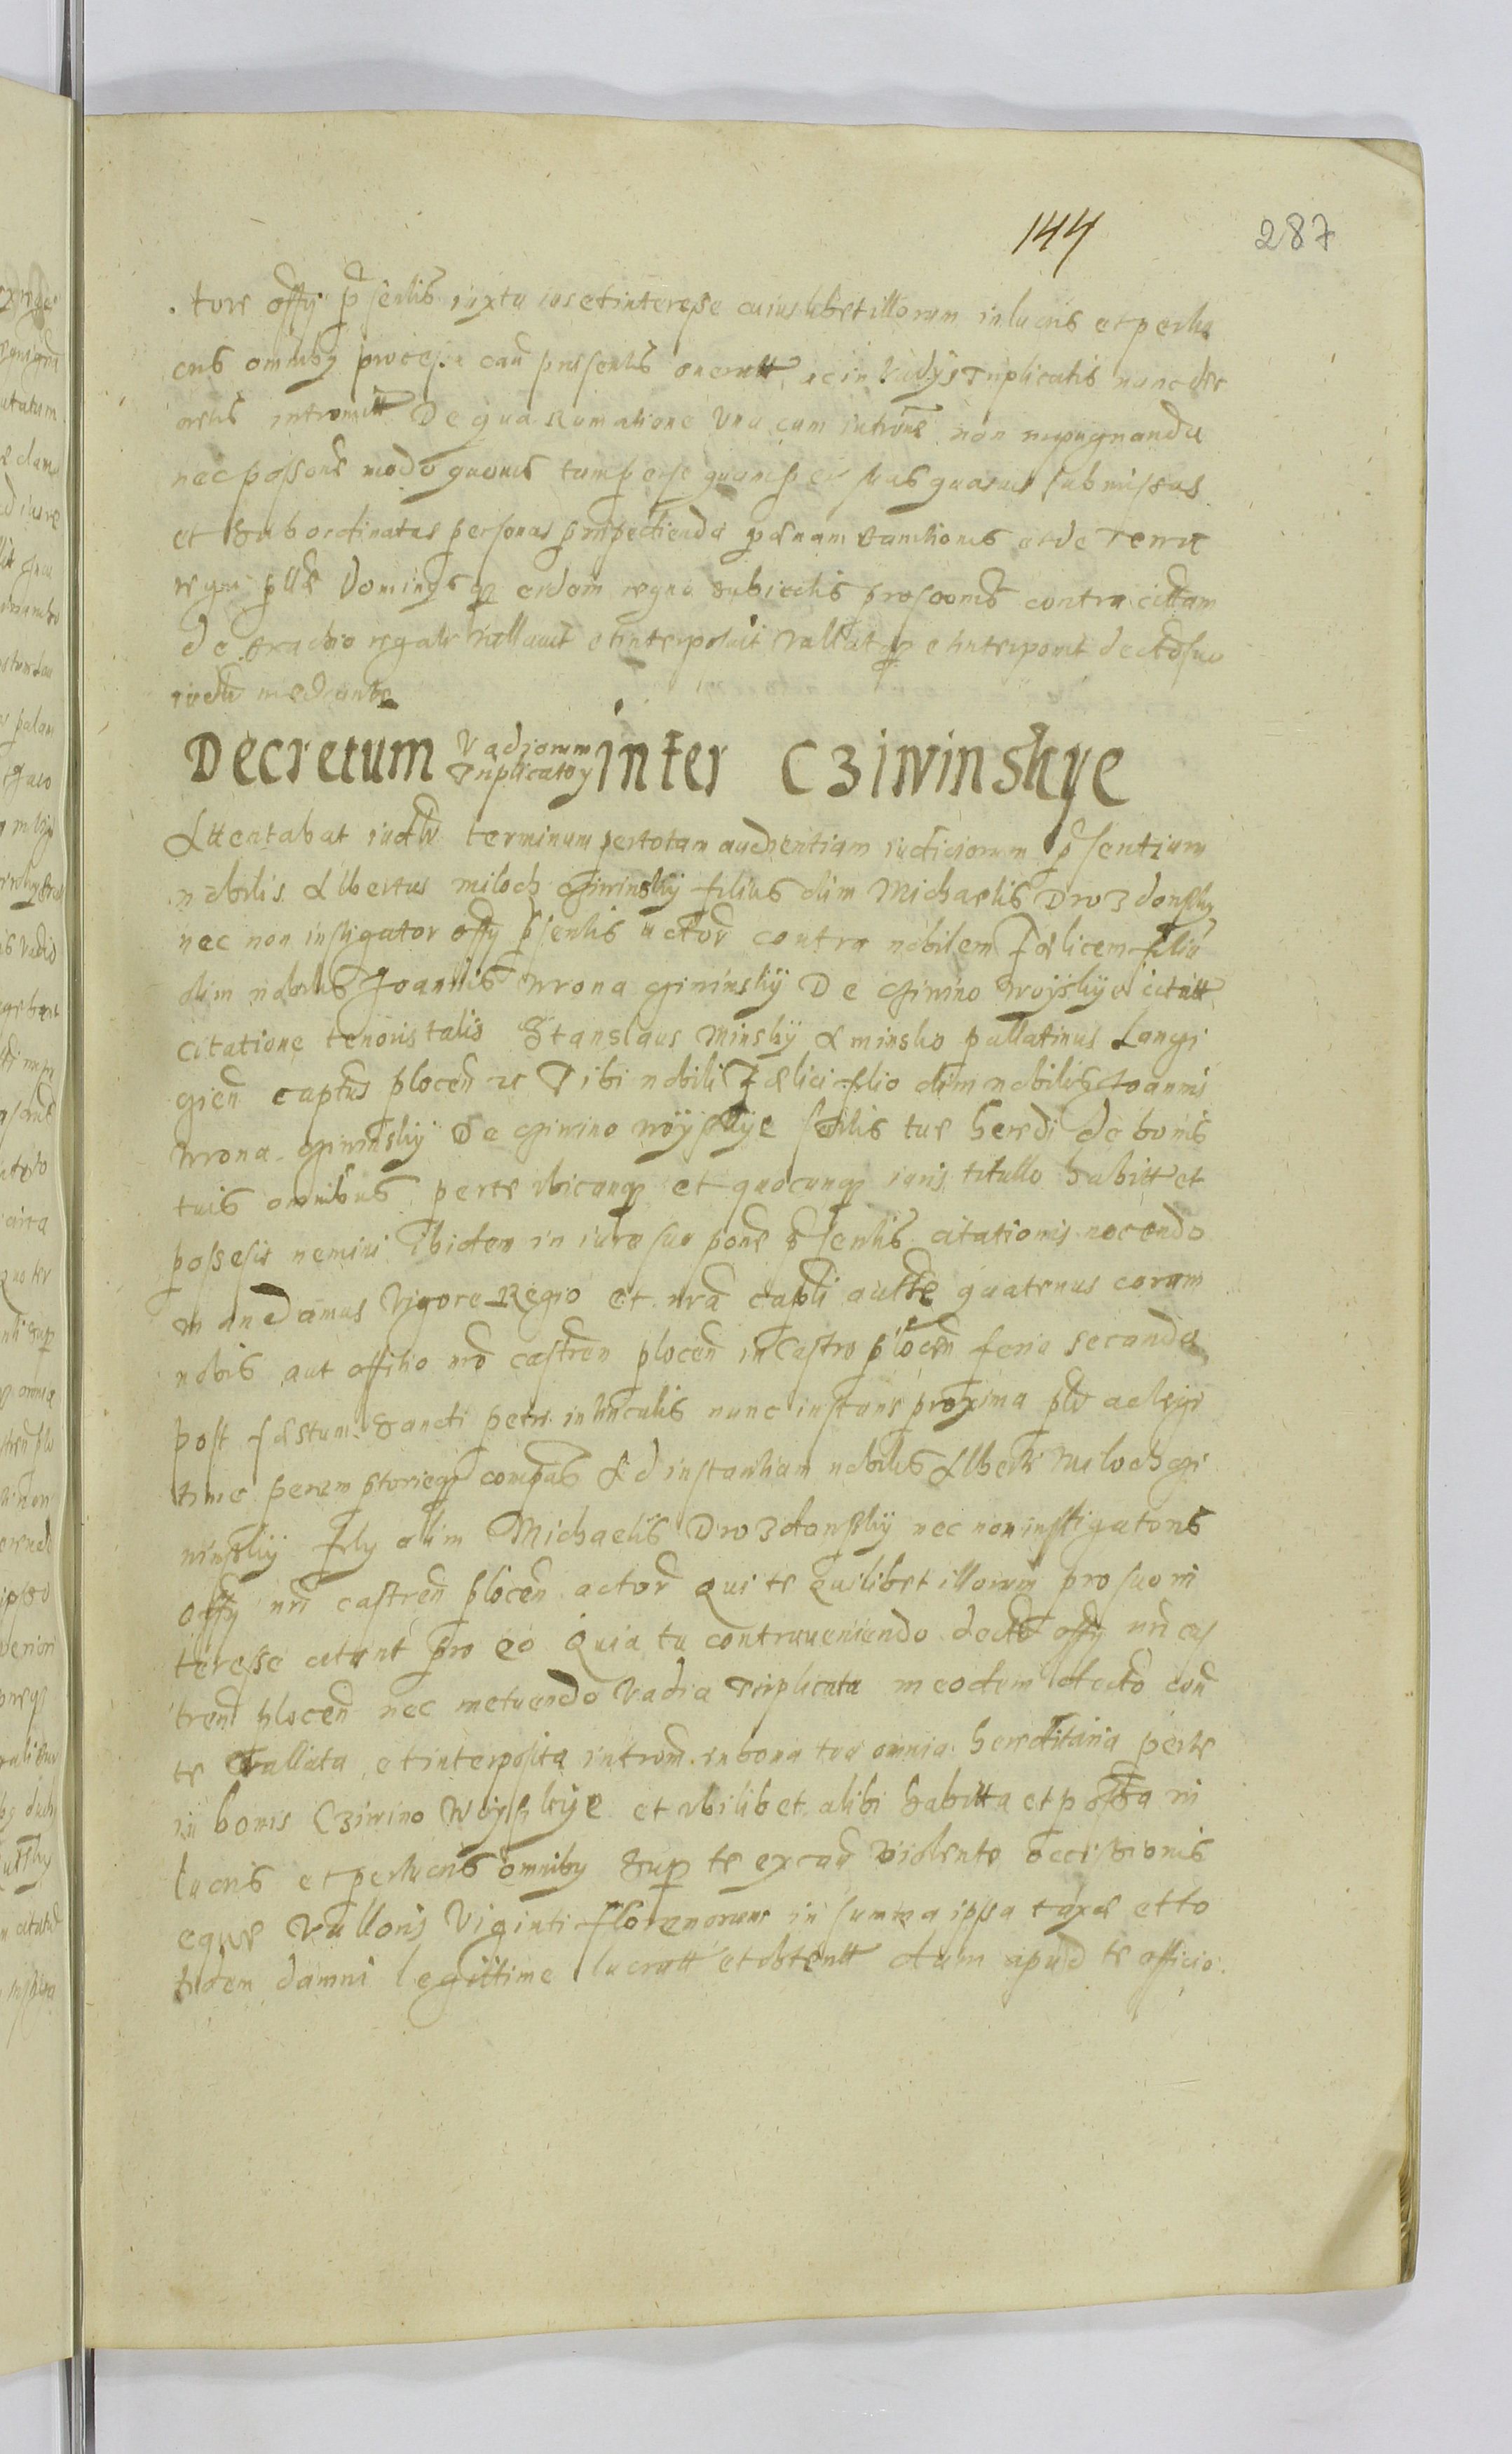 144 287
tore offy psentis iuxta ius et interesse cuiuslibet illorum in lucris et perlu
cris omnibq processu cau presentis oneratt, ac in Vadys Triplicatis nunc
intromitt De qua Rumatione Una cum introne non repugnanda
nec possone modo quouis tam per se quam per suas quasuis submissas
et Subordinatas personas pnipedienda paenam bannionis et de Terris
regni Dominys qz eidem regno Subiectis prosconis contra cittam
de gracho regale Vallauit et interposuit Vallat qz et interponit decto suo
mediante
Decretum Vadiorum Triplicatoy inter Cziwinskye
Attentabat terminum per totam audientiam iudiciorum psentium
nobilis Albertus miloch Cziwinskij filius olim Michaelis Drozdonsky
nec non instigator offy psentis actor contra nobilem Faelicem filiu
olim nobilis Joannis Wrona Cziwinskij De Cziwino Woyskije citatt
Citatione tenoris talis Stanislaus Minskij A minsko pallatinus Lanczi
cien captus plocen Tibi nobili Faelici filio olim nobilis Joannis
Wrona Cziwinskij De Cziwino Woyskije tue heredi de bonis
tuis omnibus per te vbicunqz et quocunqz iuris titullo habitt et
possesis nemini ibidem in iure suo psentis citationis nocendo
mandamus Vigore Regio et nra quatenus coram
nobis aut offitio nro castren plocen in Castro plocen feria secanda
post faestum Sancti petri in Vinculis nunc instans proxima ac legi
time peremptorieqz compas Ad instantiam nobilis Alberti Miloch Czi
winskij fily olim Michaelis Drozdonskij nec non instigatoris
offy nri castren plocen actor Qui te Quilibet illorum pro suo in
teresse citant pro eo Quia tu contraueniendo decto offy nri cas
tren plocen nec metuendo Vadia Triplicata in eodem decto con
te Vallata et interposita introm in bona tua omnia hereditaria per te
in bonis Cziwino Woyskije et vbilibet alibi habitta et possa in
lucris et perlucris omnibq Sup te ex cau violente occisionis
eque Valloris Viginti florenorum in summa ipsa taxae et to
tidem damni legittime lucratt et obtentt dum apud te officio